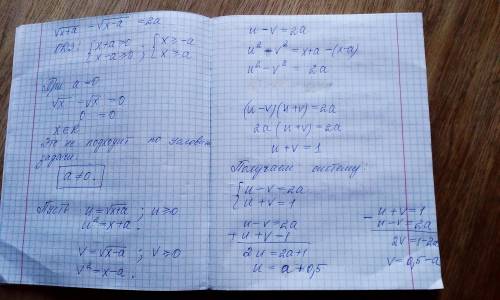 √x+a - √x-a = 2a
ОДЗ: { x+a ≥ 0 ; { x ≥ -a
{ x-a ≥ 0 ; { x ≥ a
При a=0
√x - √x = 0
0 = 0
x∈R
Это не подходит по условию
задачи.
a≠0.
Пусть u=√x+a ; u≥0
u²=x+a.
v=√x-a ; v≥0
v²=x-a.
u-v=2a
u²-v²=x+a-(x-a)
u²-v²=2a
(u-v)(u+v)=2a
2a(u+v)=2a
u+v=1
Получаем систему:
{ u-v=2a
{ u+v=1
u-v=2a
+ u+v=1
2u=2a+1
u=a+0,5
- u+v=1
u-v=2a
2v=1-2a
v=0,5-a